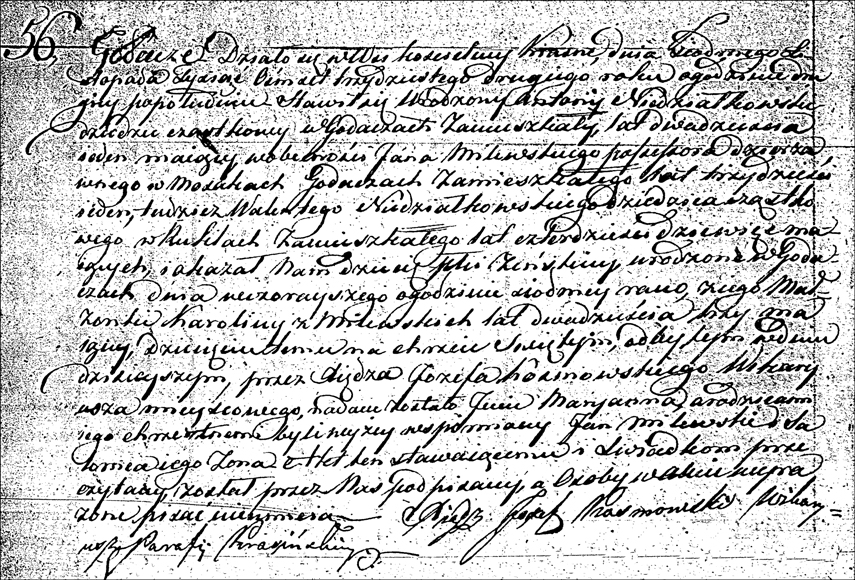 56. Godacze. Działo się we Wsi kościelney Krasne, dnia Siodmego Li-
stopada Tysiąc Ośmset trzydziestego drugiego roku o godzinie dru
giey popołudniu Stawił się Urodzony Antoni Niedziałkowski
dziedzic cząstkowy w Godaczach Zamieszkały, lat dwadzieścia
ieden maiący w obecności Jana Milewskiego possessora dzierża
wnego w Godaczach Zamieszkałego lat trzydzieści
ieden, tudzież Walentego Niedziałkowskiego dziedzica cząstko
wego w Zamieszkałego lat czterdzieści dziewięć ma
iących, i okazał Nam dziecię płci Żeńskiey urodzone w Goda-
czach dnia wczorayszego o godzinie siodmey rano, z iego Mał-
żonki Karoliny z Milewskich lat dwadzieścia trzy ma
iącey, dziecięciu temu na chrzcie Świętym, odbytym w dniu
dzisieyszym, przez Xiędza Józefa Kosmowskiego Wikary
usza mieyscowego, nadane zostało Jmie Maryanna, a rodzicami
iego chrzestnemi byli wyżey wspomniany Jan Milewski i Sa
lomea iego Żona. Akt ten stawaiącemu i Świadkom prze
czytany, został przez Nas podpisany, a Osoby w akcie wyra
żone pisać nieumieią Xiądz Józef Kosmowski Wikary-
usz Parafii Krasińskiey